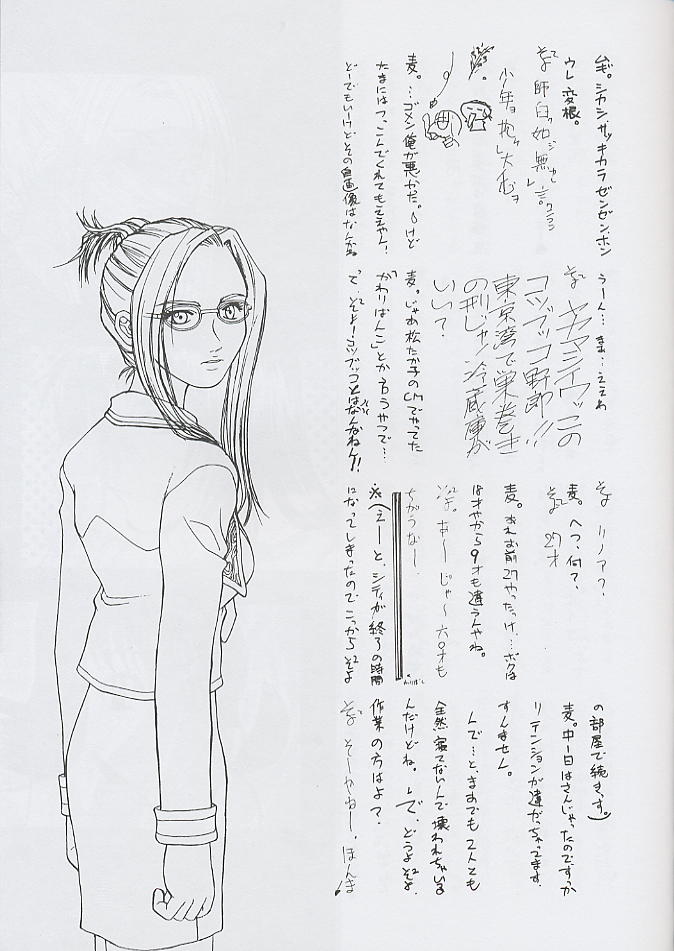 ムギ。シカシ、サッキカラゼンゼン、ホン
ウレ変根。
少年ョ抱ヶ大む ヲ
麦。…ゴメン俺が悪かった。けど
たまにはつっこんでくれてもええやん!
どーでもいーけどその自画像はなんだ。
うーん…まぁ…ええわ
ヤマシイウッコの
コツブッコ野郎!!
東京湾で巣巻き
の刑じゃ!冷蔵庫が
いい?
麦。じゃあ松たか子のCMでやってた
「かわりばんこ」とか言うやつで…
で、ぞぉよ!コツブッコとはなんなねん!!
ぞぉ リノア?
麦。へっ、何?
ぞぉ 27才
麦。おれお前27やったっけ…ボクは
18才やから9才も違うんやね。
ぞぉ。あ〜じゃ〜六〇才も
ちがうなー。
※(えーと、シティが終了の時間
になってしまったのでこっからぞぉよ
の部屋で続きっす。)
麦。中一日はさんじゃったのですか
りテンションが違がっちゃってます。
すんません。
んで…と、まぁでも2人とも
全然寝てないんで壊われちゃいる
んだけどね。で、どうよぞぉよ、
作業の方はよ?
ぞぉ そーやねー、ほんま